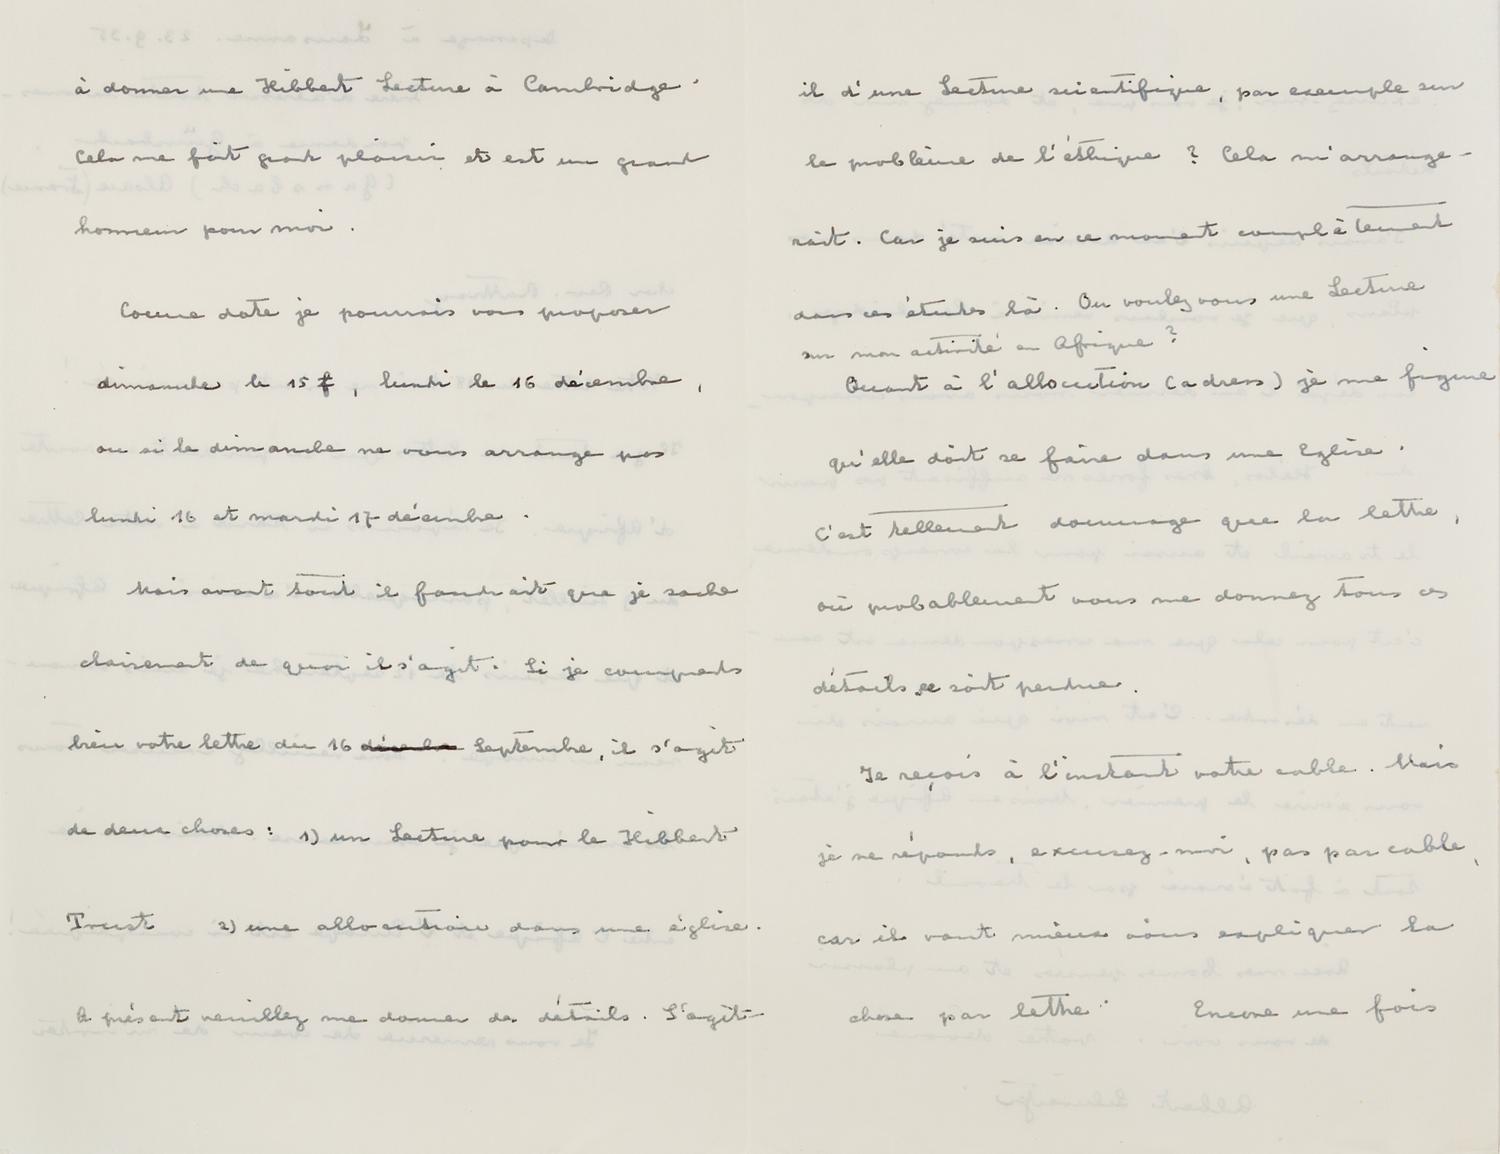 à donner une Hibbert Lecture à Cambridge.
Cela me fait grand plaisir et est un grand
honneur pour moi.
Comme date je pourrais vous proposer
dimanche le 15, lundi le 16 décembre,
ou si le dimanche ne vous arrange pas
lundi 16 et mardi 17 décembre.
Mais avant tout il faudrait que je sache
clairement de quoi il s'agit. Si je comprends
bien votre lettre du 16 Septembre, il s'agit
de deux choses: 1) un Lecture pour le Hibbert
Trust 2) une allocution dans une église.
A présent veuillez me donner des détails. S'agit-
il d'une Lecture scientifique, par exemple sur
le problème de l'éthique? Cela m'arrange-
rait. Car je suis en ce moment complètement
dans ces études là. Ou voulez vous une Lecture
sur mon activité en Afrique?
Quant à l'allocution (adress) je me figure
qu'elle doit se faire dans une Eglise.
C'est tellement dommage que la lettre,
où probablement vous me donnez tous ces
détails se soit perdue.
Je reçois à l'instant votre cable. Mais
je ne réponds, excusez-moi, pas par cable,
car il vaut mieux vous expliquer la
chose par lettre. Encore une fois